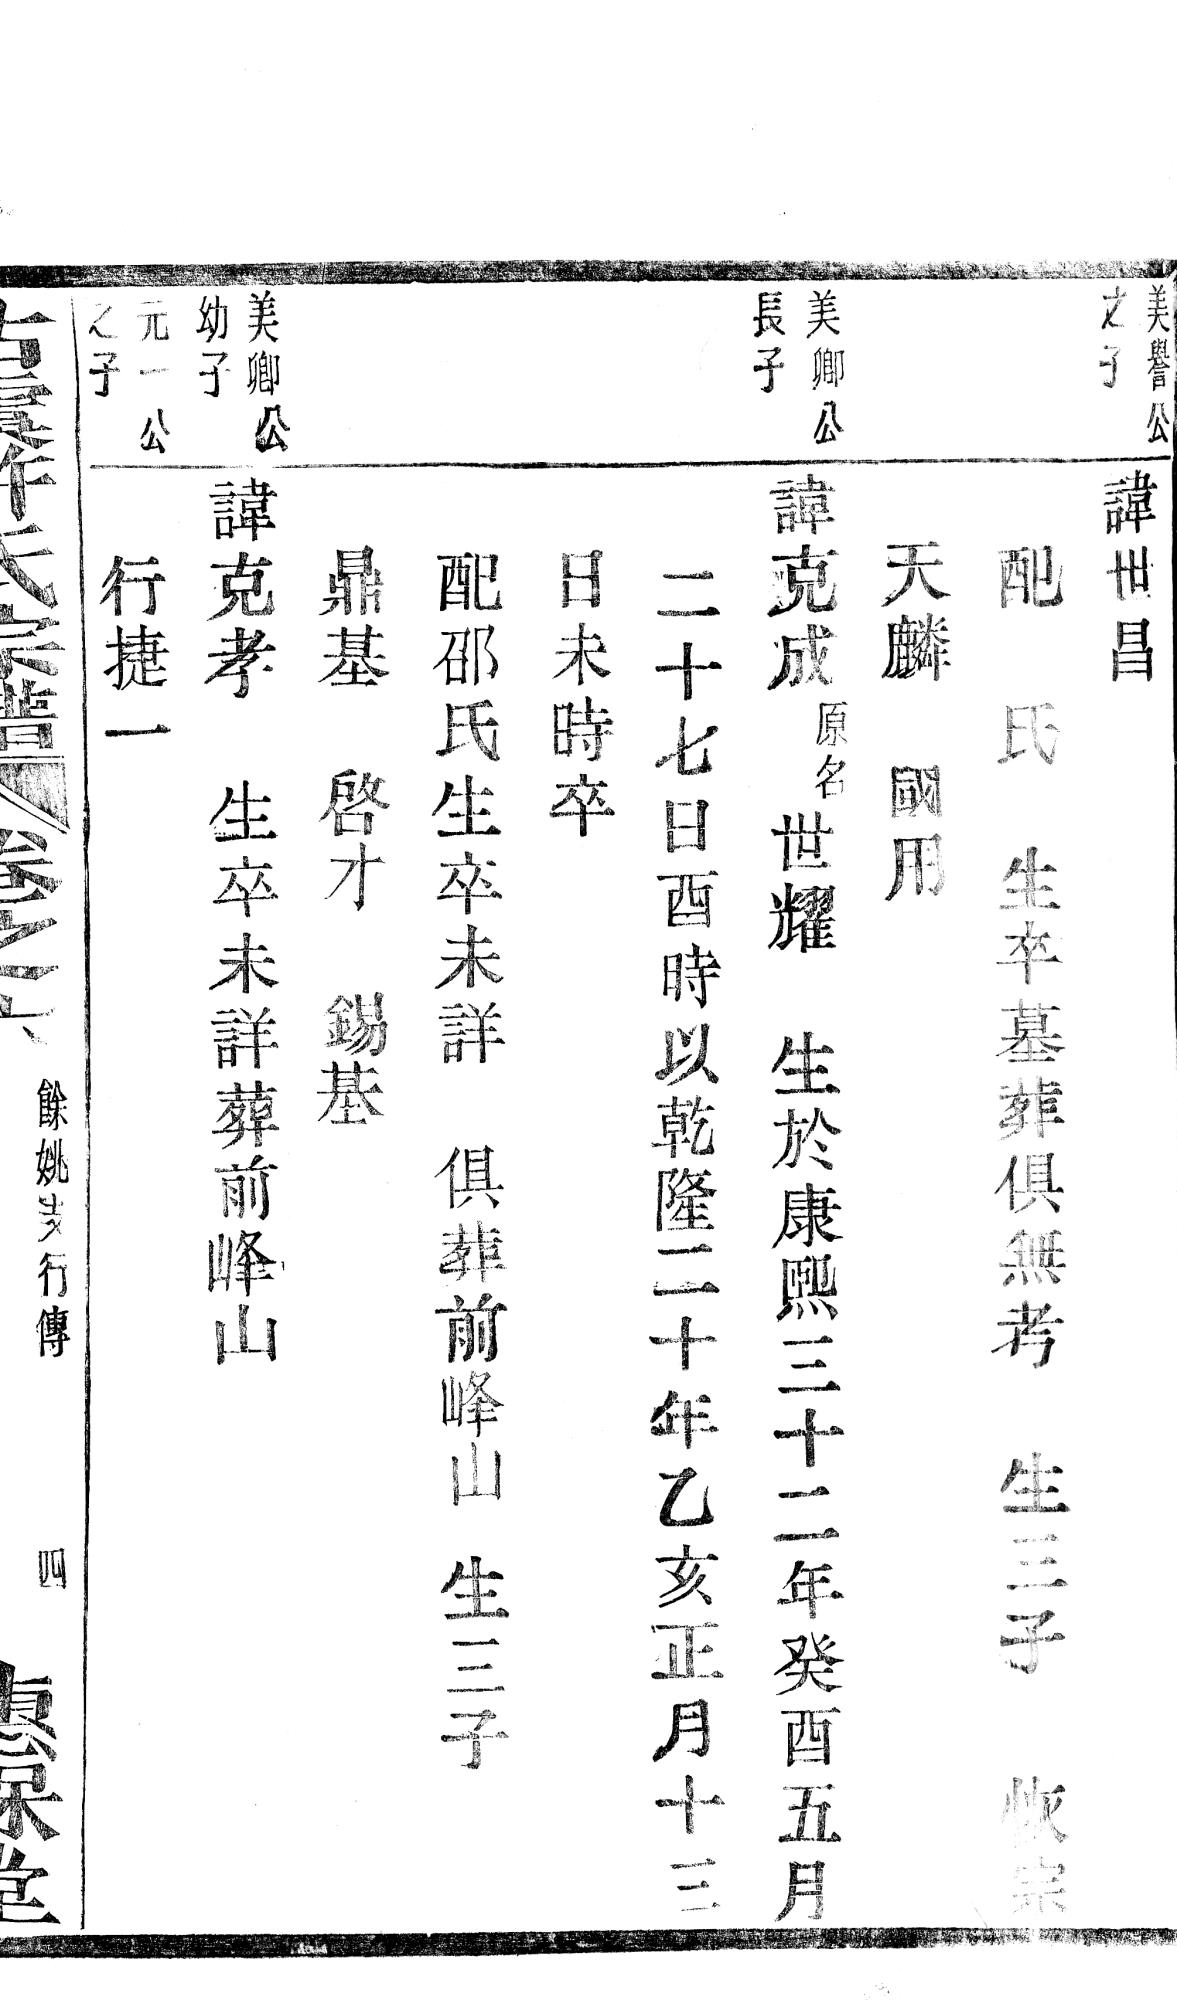 美譽公
之子
諱世昌
配　氏　生卒墓葬俱無考　生三子　恢宗
天麟　國用
美卿公
長子
諱克成原名世耀　生於康熙三十二年癸酉五月
二十七日酉時以乾隆二十年乙亥正月十三
日未時卒
配邵氏生卒未詳　俱葬前峰山　生三子
鼎基　啓才　錫基
美卿公
幼子
諱克孝　生卒未詳葬前峰山
元一公
之子
行捷一
古虞許氏宗譜　卷之六　餘姚　行傳　四　惠保堂